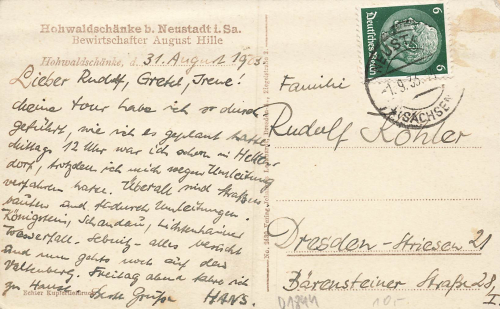 Hohwaldschänke b. Neustadt i. Sa.
Bewirtschafter August Hille
Hohwaldschänke, d. 31. August 19
Lieber Rudolf, Gretel, Irene!
Meine Tour habe ich so durch
geführt, wie ich es geplant hatte
Mittags 12 Uhr war ich schon in Hellen
dorf, trotzdem ich mich wegen Umleitung
verfahren hatte. Überall sind Straßen
bauten und dadurch Umleitungen.
Königstein, Schandau, Lichtenhainer
Wasserfall. Sebnitz - alles berührt
und nun gehts noch auf den
Valtenberg. Freitag abend kehre ich
zu Haus. Grüße HANS.
Echter Kupfertiefdruck
Familie
Rudolf Köhler
Dresden-Striesen 21
Bärensteiner Straße 28
I.
Deutsches Reich
6
6
1.9.35
(SACHSEN)
D1844
10,-